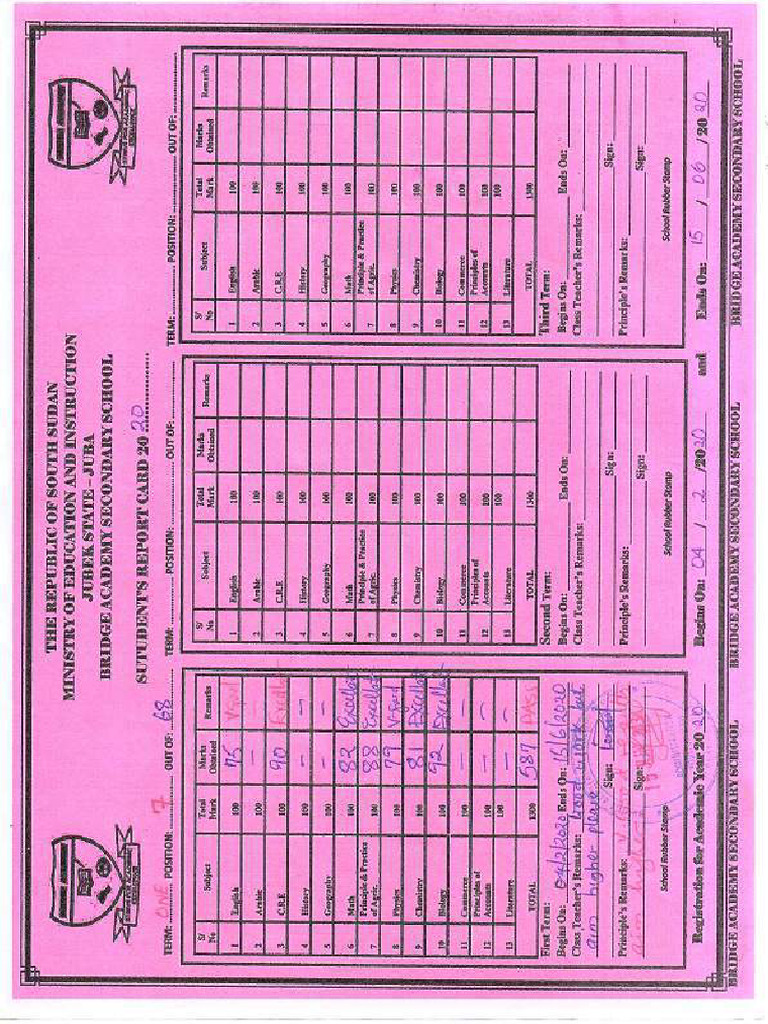 THE REPUBLIC OF SOUTH SUDAN
MINISTRY OF EDUCATION AND INSTRUCTION
JUBEK STATE - JUBA
BRIDGE ACADEMY SECONDARY SCHOOL
SUTUDENT'S REPORT CARD 20 20
TERM: ONE POSITION: 7 OUT OF: 68
S/No Subject Total Mark Marks Obtained Remarks
1 English 100 75 V.Good
2 Arabic 100 —
3 C.R.E 100 90 Excellent
4 History 100 — —
5 Geography 100 — —
6 Math 100 82 Excellent
7 Principle & Practice of Agric. 100 88 Excellent
8 Physics 100 79 V.Good
9 Chemistry 100 81 Excellent
10 Biology 100 92 Excellent
11 Commerce 100 — —
12 Principles of Accounts 100 — —
13 Literature 100 — —
TOTAL 1300 587 PASS
First Term:
Begins On: 04/2/2020 Ends On: 15/6/2020
Class Teacher's Remarks: Good work but
aim higher please Sign:
Principle's Remarks:
aim highest Sign:
School Rubber Stamp
TERM: POSITION: OUT OF:
S/No Subject Total Mark Marks Obtained Remarks
1 English 100
2 Arabic 100
3 C.R.E 100
4 History 100
5 Geography 100
6 Math 100
7 Principle & Practice of Agric. 100
8 Physics 100
9 Chemistry 100
10 Biology 100
11 Commerce 100
12 Principles of Accounts 100
13 Literature 100
TOTAL 1300
Second Term:
Begins On: Ends On:
Class Teacher's Remarks:
Sign:
Principle's Remarks:
Sign:
School Rubber Stamp
TERM: POSITION: OUT OF:
S/No Subject Total Mark Marks Obtained Remarks
1 English 100
2 Arabic 100
3 C.R.E 100
4 History 100
5 Geography 100
6 Math 100
7 Principle & Practice of Agric. 100
8 Physics 100
9 Chemistry 100
10 Biology 100
11 Commerce 100
12 Principles of Accounts 100
13 Literature 100
TOTAL 1300
Third Term:
Begins On: Ends On:
Class Teacher's Remarks:
Sign:
Principle's Remarks:
Sign:
School Rubber Stamp
Registration for Academic Year 20 20 Begins On: 04 / 2 /20 20 and Ends On: 15 / 06 / 20 20
BRIDGE ACADEMY SECONDARY SCHOOL BRIDGE ACADEMY SECONDARY SCHOOL BRIDGE ACADEMY SECONDARY SCHOOL